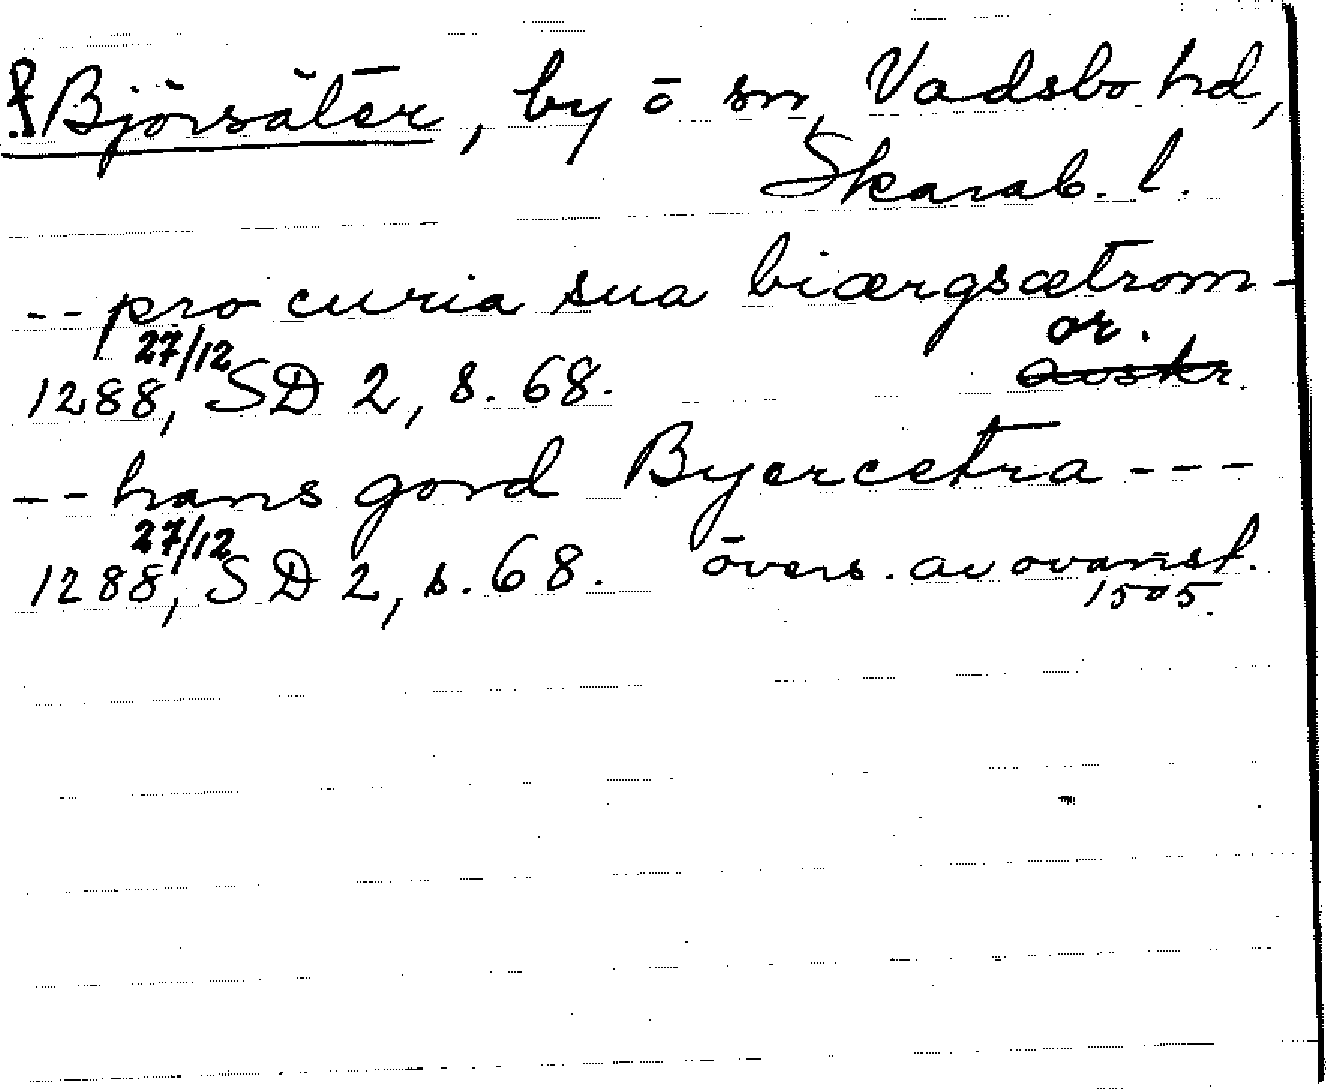 Björsäter, by o sn, Vadsbo hd,
Skarab. l.
-- pro curia sua biærgsætrom -
27/12 or.
1288, SD 2, s. 68. avskr.
-- hans gord Byercetra ---
27/12
1288, SD 2, s. 68. övers. av ovanst.
1505.